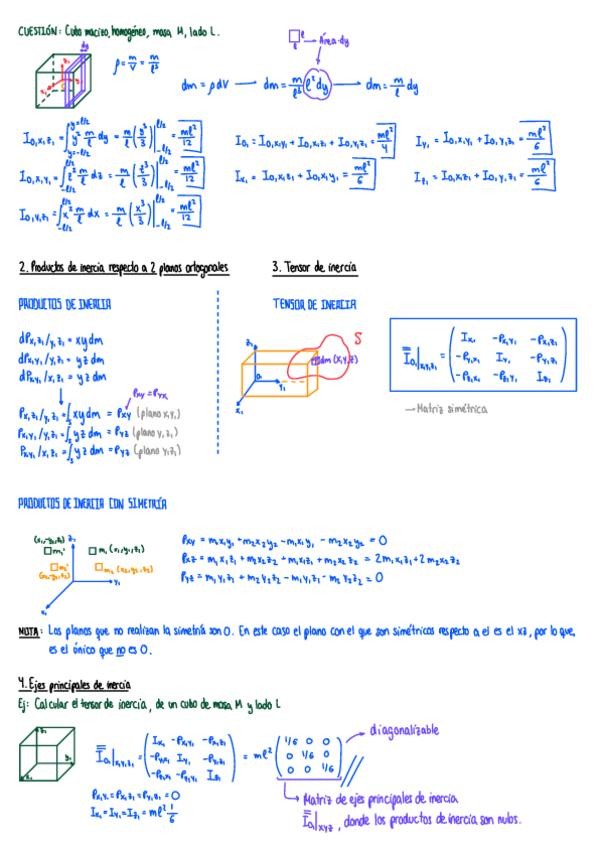 CUESTIÓN: Cubo macizo, homogéneo, masa M, lado L.
dy
ρ = m/V = m/ℓ³
ℓ
Área·dy
dm = ρ dV → dm = m/ℓ³ ℓ² dy → dm = m/ℓ dy
I₀,x₁z₁ = ∫_{y=-ℓ/2}^{y=ℓ/2} y² m/ℓ dy = m/ℓ (y³/3)|_{-ℓ/2}^{ℓ/2} = mℓ²/12
I₀₁ = I₀,x₁y₁ + I₀,x₁z₁ + I₀,y₁z₁ = mℓ²/4
I_y₁ = I₀,x₁y₁ + I₀,y₁z₁ = mℓ²/6
I₀,x₁y₁ = ∫_{-ℓ/2}^{ℓ/2} z² m/ℓ dz = m/ℓ (z³/3)|_{-ℓ/2}^{ℓ/2} = mℓ²/12
I_x₁ = I₀,x₁z₁ + I₀,x₁y₁ = mℓ²/6
I_z₁ = I₀,x₁z₁ + I₀,y₁z₁ = mℓ²/6
I₀,y₁z₁ = ∫_{-ℓ/2}^{ℓ/2} x² m/ℓ dx = m/ℓ (x³/3)|_{-ℓ/2}^{ℓ/2} = mℓ²/12
2. Productos de inercia respecto a 2 planos ortogonales
3. Tensor de inercia
PRODUCTOS DE INERCIA
TENSOR DE INERCIA
dPx₁z₁/y₁z₁ = xy dm
dPx₁y₁/y₁z₁ = yz dm
dPx₁y₁/x₁z₁ = yz dm
Pxy = Pyx
Px₁z₁/y₁z₁ = ∫ₛ xy dm = Pxy (plano x₁y₁)
Px₁y₁/y₁z₁ = ∫ₛ yz dm = Pyz (plano y₁z₁)
Px₁y₁/x₁z₁ = ∫ₛ yz dm = Pyz (plano y₁z₁)
z₁
S
dm (x,y,z)
a
y₁
x₁
I_a|x₁y₁z₁ = ( Ix₁ -Px₁y₁ -Px₁z₁
-Py₁x₁ Iy₁ -Py₁z₁
-Pz₁x₁ -Pz₁y₁ Iz₁ )
— Matriz simétrica
PRODUCTOS DE INERCIA CON SIMETRÍA
(x₁,-y₁,z₁) z₁
m₁' m₁ (x₁,y₁,z₁)
m₂' m₂ (x₂,y₂,z₂)
(x₂,-y₂,z₂)
y₁
x₁
Pxy = m₁x₁y₁ + m₂x₂y₂ - m₁x₁y₁ - m₂x₂y₂ = 0
Pxz = m₁x₁z₁ + m₂x₂z₂ + m₁x₁z₁ + m₂x₂z₂ = 2m₁x₁z₁ + 2m₂x₂z₂
Pyz = m₁y₁z₁ + m₂y₂z₂ - m₁y₁z₁ - m₂y₂z₂ = 0
NOTA: Los planos que no realizan la simetría son 0. En este caso el plano con el que son simétricos respecto a el es el xz, por lo que,
es el único que no es 0.
4. Ejes principales de inercia
Ej: Calcular el tensor de inercia, de un cubo de masa M y lado L
z₁
y₁
x₁
I_a|x₁y₁z₁ = ( Ix₁ -Px₁y₁ -Px₁z₁
-Py₁x₁ Iy₁ -Py₁z₁
-Pz₁x₁ -Pz₁y₁ Iz₁ ) = mℓ² ( 1/6 0 0
0 1/6 0
0 0 1/6 )
diagonalizable
Px₁y₁ = Px₁z₁ = Py₁z₁ = 0
Ix₁ = Iy₁ = Iz₁ = mℓ² 1/6
Matriz de ejes principales de inercia
I_a|xyz , donde los productos de inercia son nulos.